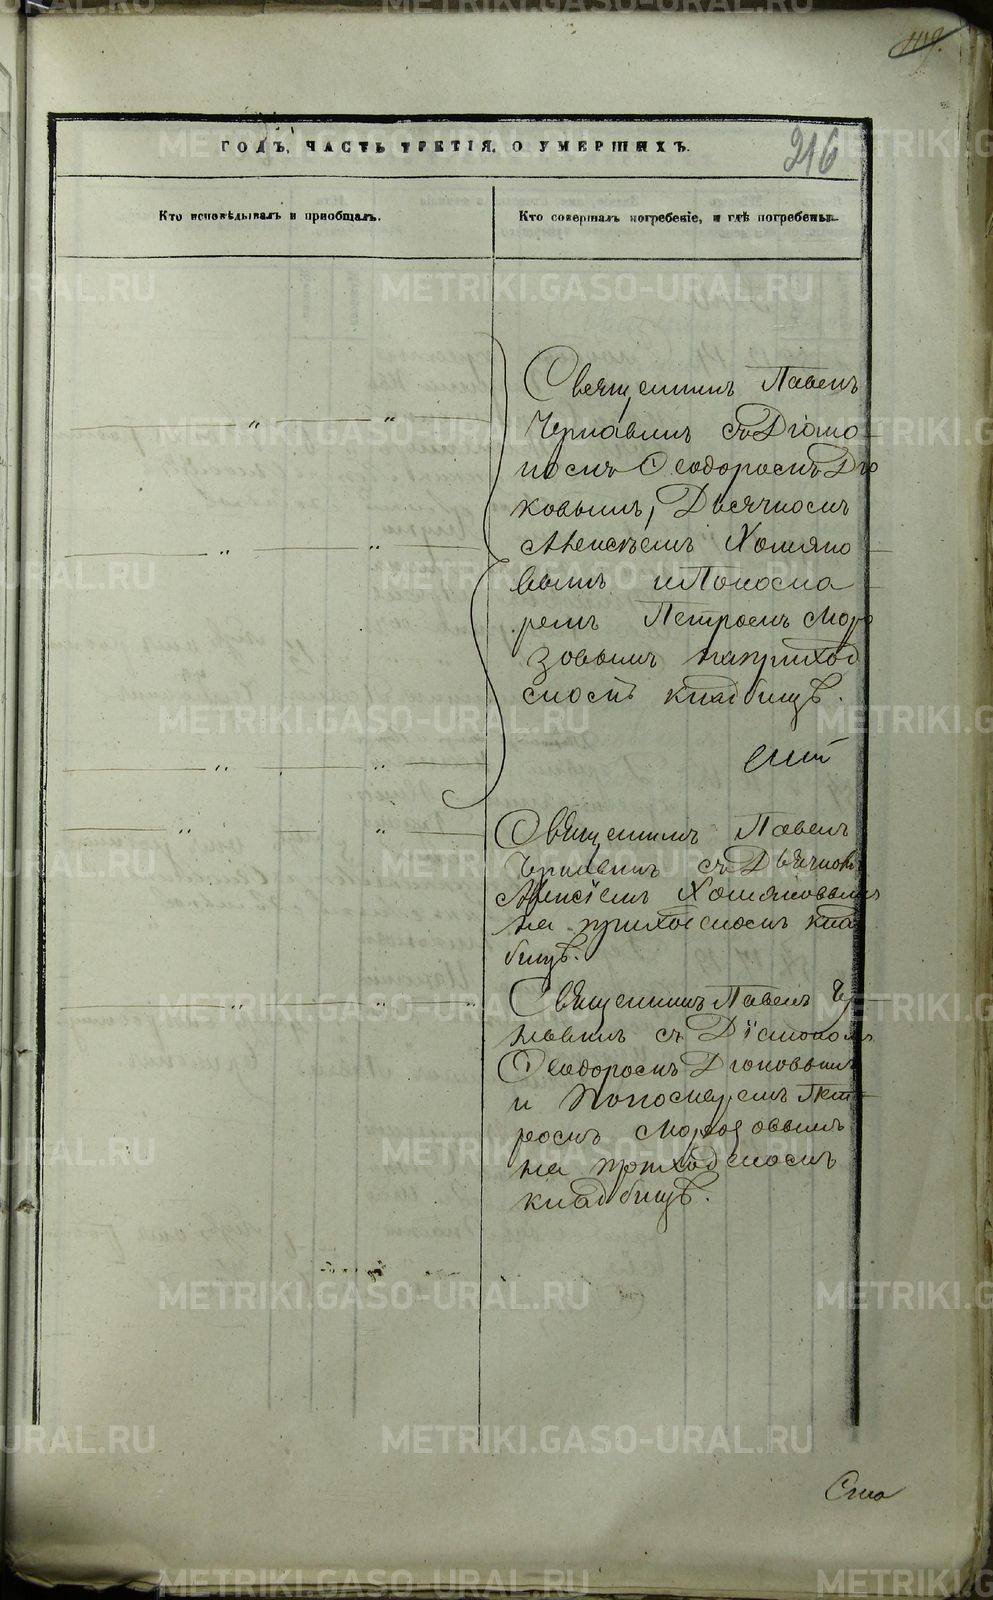 216
ГОДЪ, ЧАСТЬ ТРЕТІЯ, О УМЕРШИХЪ.
Кто исповѣдывалъ и пріобщалъ.
Кто совершалъ погребеніе, и гдѣ погребены.
Священникъ Павелъ
Чернавинъ съ Діако
номъ Ѳеодоромъ Дья
ковымъ, Дьячкомъ
Алексѣемъ Хомяко
вымъ и Поносма
ремъ Петромъ Моро
зовымъ на приход
скомъ кладбищѣ.
Священникъ Павелъ
Чернавинъ съ Дьячкомъ
Алексіемъ Хомяковымъ
на приходскомъ клад
бищѣ.
Священникъ Павелъ Чер
навинъ съ Діакономъ
Ѳеодоромъ Дьяковымъ
и Поносмаремъ Пет
ромъ Морозовымъ
на приходскомъ
кладбищѣ.
METRIKI.GASO-URAL.RU